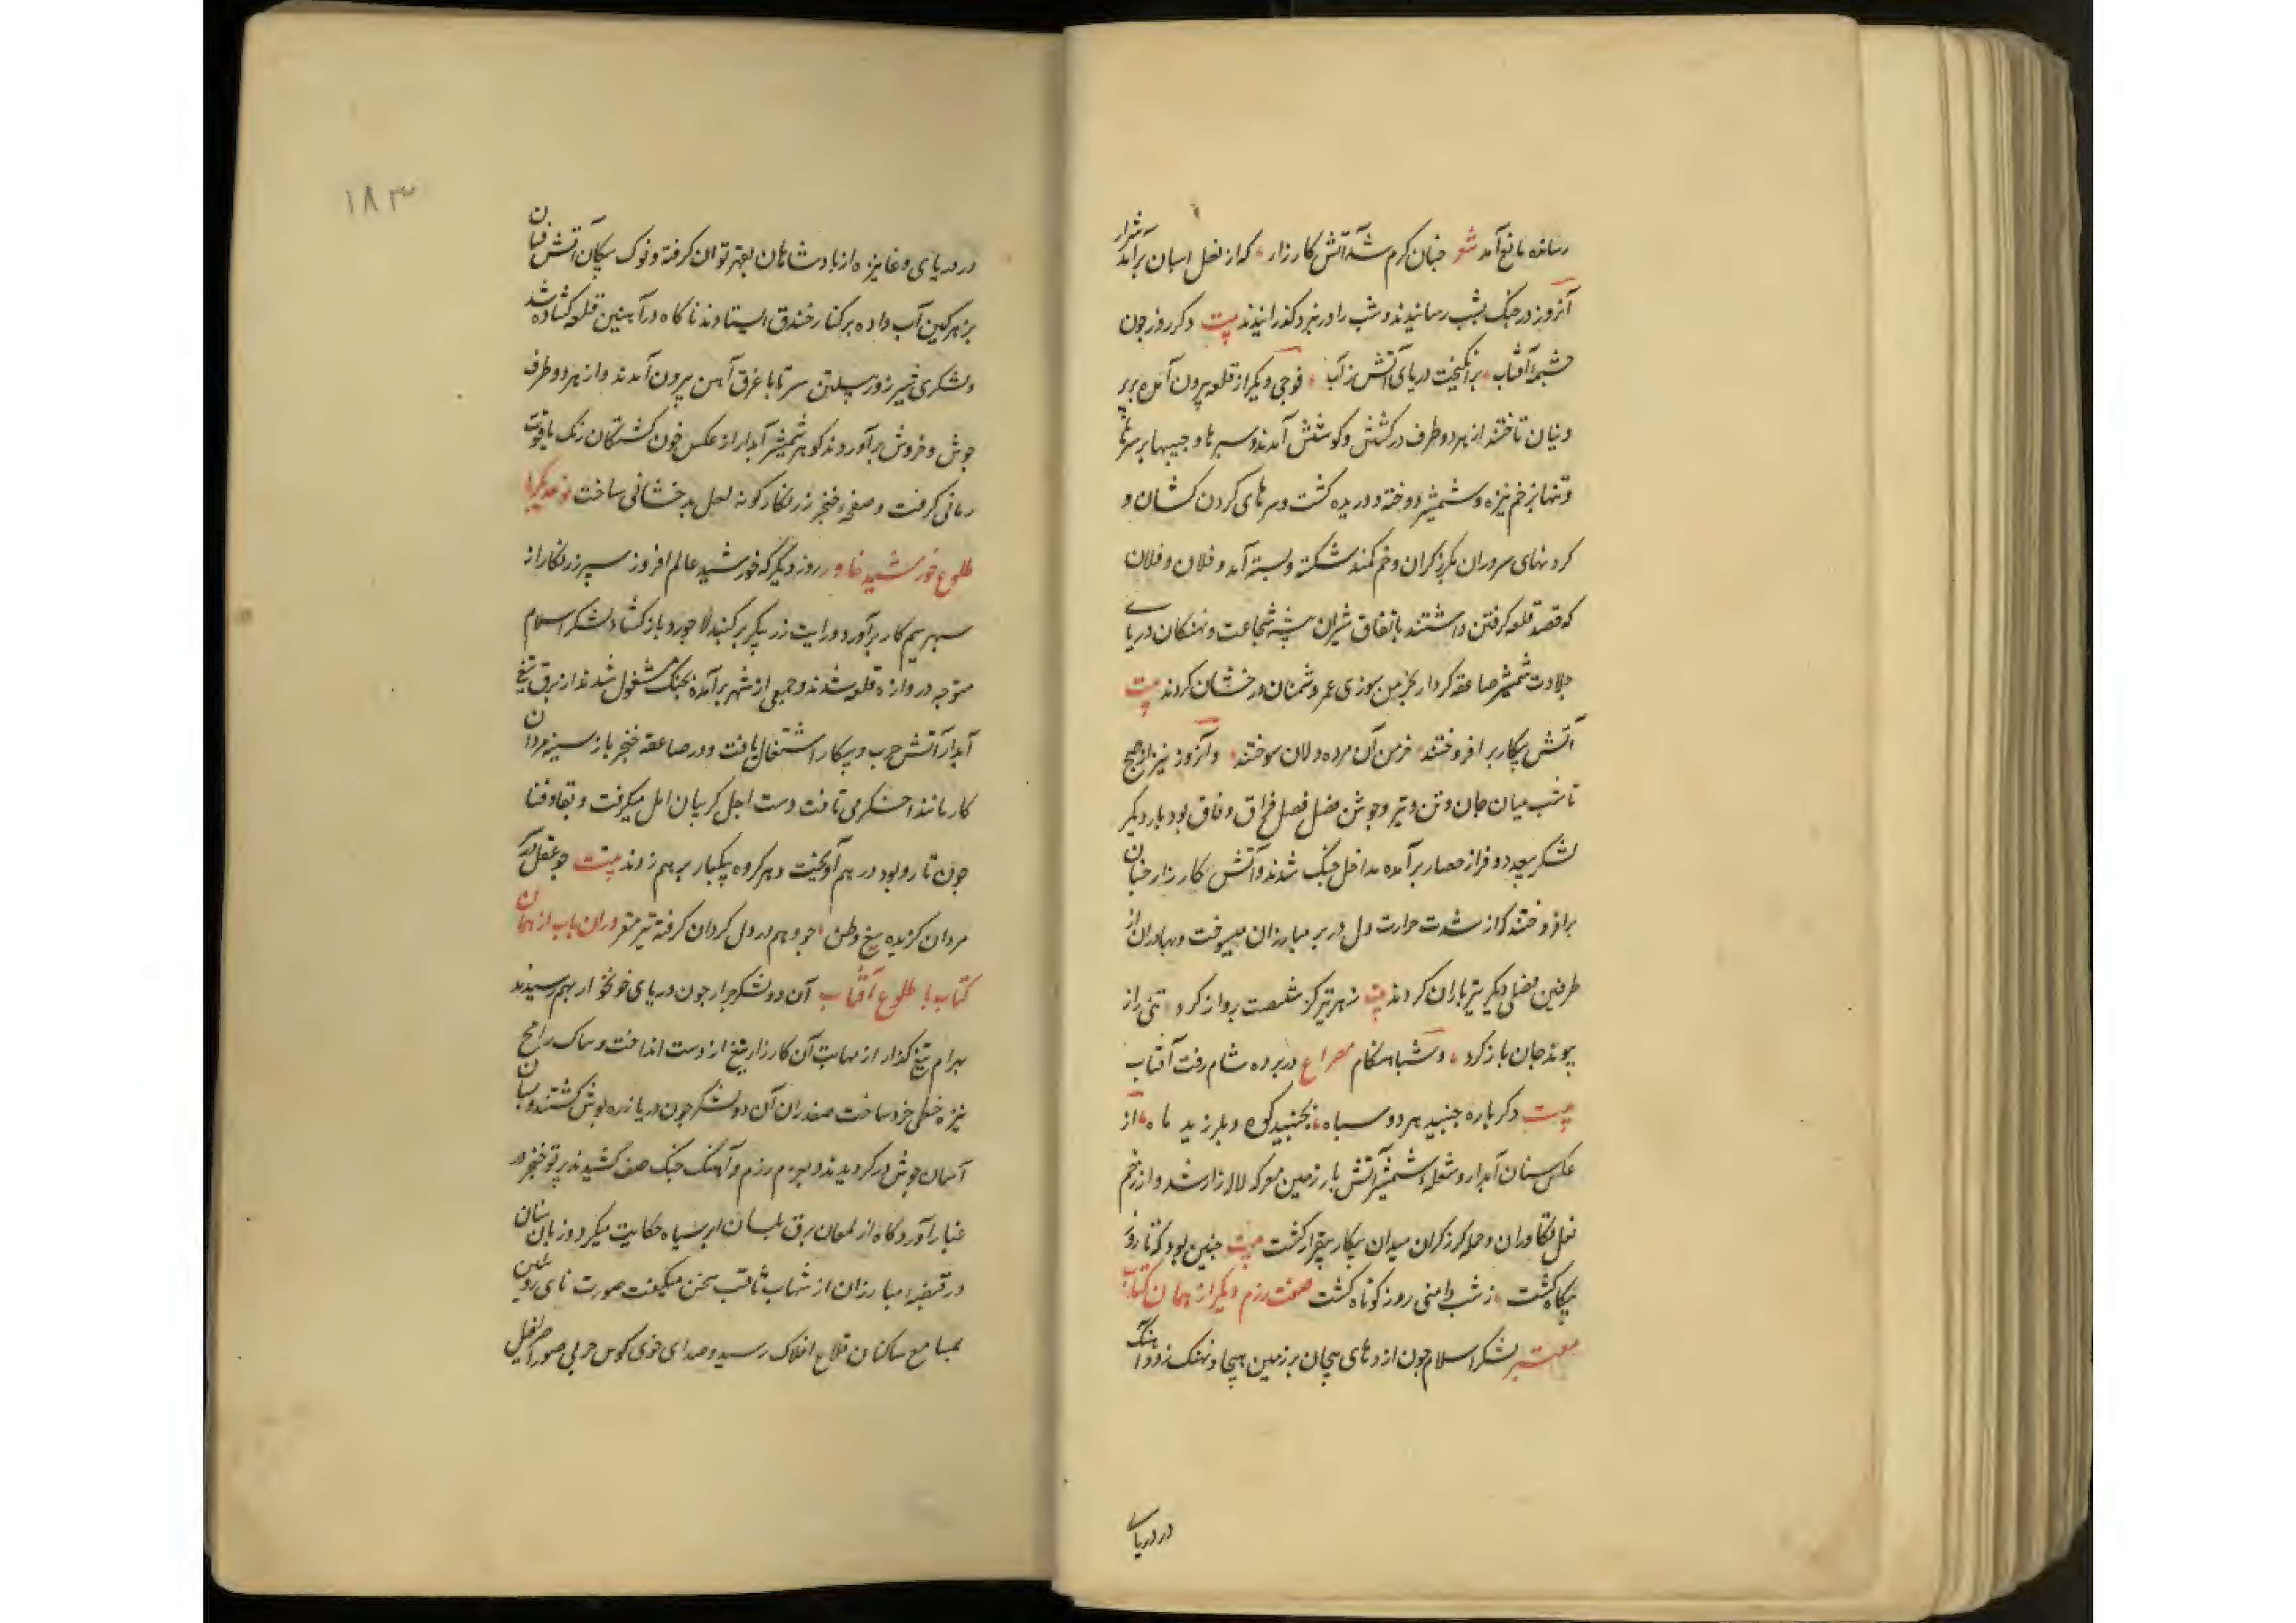 رسانده مانع آمد شعر چنان کرم شد آتش کارزار که از نعل اسبان برآمد شرار
آنروز در جنک بشب رسانیدند و شب را در نبرد کذرانیدند بیت دکر روز چون
چشمهٔ آفتاب برانکیخت دریای آتش ز آب فوجی دیکر از قلعه بیرون آمده بر
و تاختند از هر دو طرف در کشش و کوشش آمدند و سرها
و تنها بزخم نیزه و شمشیر دوخته و دریده کشت و سرهای کردن کشان و
کردنهای سروران بکرز کران و خم کمند شکسته و بسته آمد و فلان و فلان
که قصد قلعه کرفتن داشتند باتفاق شیران بیشه شجاعت و نهنکان دریای
جلادت شمشیر صاعقه کردار بخرمن سوزی عمر دشمنان درخشان کردند بیت
آتش پیکار بر افروختند خرمن آن مرده دلان سوختند و آنروز نیز از صبح
تا شب میان جان و تن و تیر و جوشن فصل فراق و بود بار دیکر
لشکر بیحد و فر از حصار برآمده مداخل جنک شدند و آتش کارزار چنان
برافروختند که از شدت حرارت دل در بر مبارزان میسوخت و بهادران از
طرفین فصلی دیکر تیر باران کردند بیت ز هر تیر کز شصت پرواز کرد تنی را ز
پیوند جان باز کرد و شباهنکام مصراع در پرده شام رفت آفتاب
بیت دکر باره جنبید هر دو سپاه بجنبید کوه و بلرزید ماه از
عکس سنان آبدار و شعلهٔ شمشیر آتش بار زمین معرکه لاله زار شد و از زخم
نعل تکاوران و حمله کرز کران میدان پیکار بیقرار کشت بیت چنین بود که تا روز
بیکاه کشت ز شب دامنی روز کوتاه کشت صفت رزم دیکر از همان کتاب
معتبر لشکر اسلام چون اژدهای پیچان بر زمین هیجا و نهنک زود آهنک
در دریای
۱۸۳
در دریای وغا نیزه از پادشاهان بقهر توان کرفته و نوک پیکان آتش فشان
بزهر کین آب داده بر کنار خندق ایستادند ناکاه در آهنین قلعه کشاده شد
و لشکری شیر زور پیلتن سر تا پا غرق آهن بیرون آمدند و از هر دو طرف
جوش و خروش برآوردند کوهر شمشیر آبدار از عکس خون کشتکان رنک یاقوت
رمانی کرفت و صفحهٔ خنجر زرنکار کونه لعل بدخشانی ساخت
طلوع خورشید خاور روز دیکر که خورشید عالم افروز سپر زرنکار از
سپهر سیم کار برآورد و رایت زر پیکر بر کنبد لاجورد باز کشاد لشکر اسلام
متوجه دروازه قلعه شدند و جمعی از شهر برآمده بجنک مشغول شدند از برق تیغ
آبدار آتش حرب و پیکار اشتعال یافت و در صاعقه خنجر باز سینه مردان
کار مانند اخکر می تافت دست اجل کریبان امل میکرفت و بقا و فنا
چون تار و پود در هم آویخت و هر کروه یکبار بر هم زدند بیت
مردان کزیده تیغ وطن چو وهم در دل کردان کرفته تیر مقر وران باب از همان
کتاب با طلوع آفتاب آن دو لشکر جرار چون دریای خونخوار بهم رسیدند
بهرام تیغ کذار از مهابت آن کارزار تیغ از دست انداخت و سماک رامح
نیزه خطی خرد ساخت صفدران آن دو لشکر چون دریا زره پوش کشتند و بسان
آسمان جوشن در کردیدند و بعزم رزم و آهنک جنک صف کشیدند پرتو خنجر در
غبار آوردکاه از لمعان برق بلسان ابر سیاه حکایت میکرد و زبان سنان
در قبضهٔ مبارزان از شهاب ثاقب سخن میکفت صورت نای رویین
بمسامع ساکنان قلاع افلاک رسید و صدای خوی کوس حربی صور اسرافیل